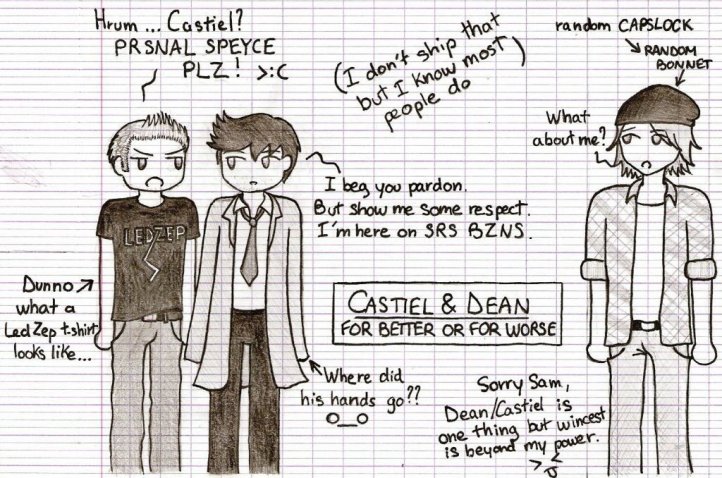 Hrum ... Castiel?
PRSNAL SPEYCE
PLZ! >:C
(I don't ship that
but I know most
people do)
random CAPSLOCK
RANDOM
BONNET
What
about me?
I beg you pardon.
But show me some respect.
I'm here on SRS BZNS.
LEDZEP
Dunno
what a
Led Zep t-shirt
looks like...
CASTIEL & DEAN
FOR BETTER OR FOR WORSE
Where did
his hands go??
O__O
Sorry Sam,
Dean/Castiel is
one thing but wincest
is beyond my power.